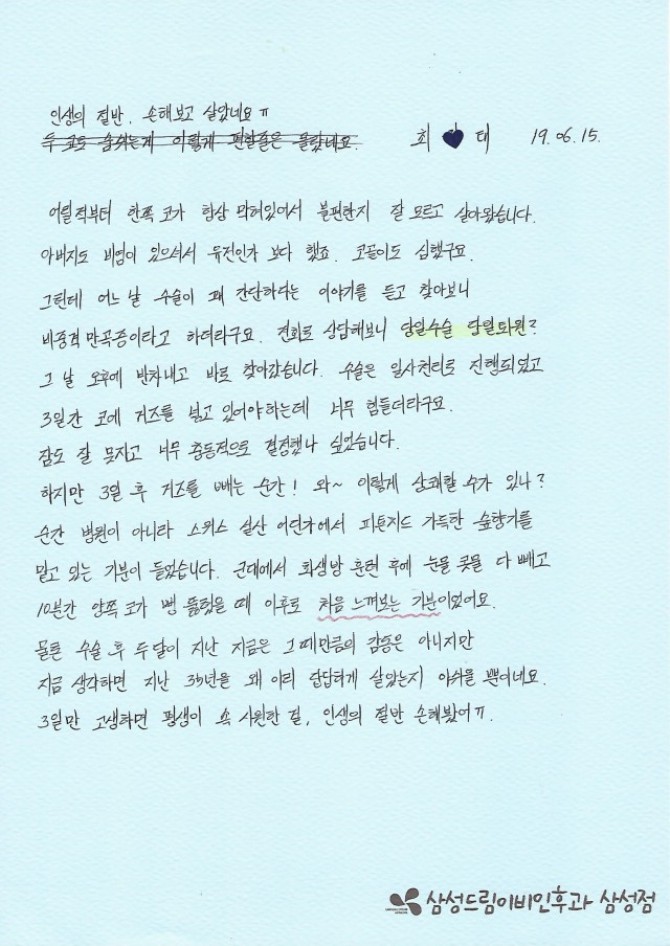 인생의 절반, 손해보고 살았네요ㅠ
두 코로 숨쉬는게 이렇게 편할줄은 몰랐네요. 최 태 19.06.15.
어릴적부터 한쪽 코가 항상 막혀있어서 불편한지 잘 모르고 살아왔습니다.
아버지도 비염이 있으셔서 유전인가 보다 했죠. 코골이도 심했구요.
그런데 어느 날 수술이 꽤 간단하다는 이야기를 듣고 찾아보니
비중격 만곡증이라고 하더라구요. 전화로 상담해보니 당일수술 당일퇴원?
그 날 오후에 반차내고 바로 찾아갔습니다. 수술은 일사천리로 진행되었고
3일간 코에 거즈를 넣고 있어야하는데 너무 힘들더라구요.
잠도 잘 못자고 너무 충동적으로 결정했나 싶었습니다.
하지만 3일 후 거즈를 빼는 순간! 와~ 이렇게 상쾌할 수가 있나?
순간 병원이 아니라 스위스 설산 어딘가에서 피톤치드 가득한 숲향기를
맡고 있는 기분이 들었습니다. 군대에서 화생방 훈련 후에 눈물 콧물 다 빼고
10분간 양쪽 코가 뻥 뚫렸을 때 이후로 처음 느껴보는 기분이었어요.
물론 수술 후 두달이 지난 지금은 그때만큼의 감동은 아니지만
지금 생각하면 지난 35년을 왜 이리 답답하게 살았는지 아쉬울 뿐이네요.
3일만 고생하면 평생이 속 시원한 걸, 인생의 절반 손해봤어ㅠ.
삼성드림이비인후과 삼성점